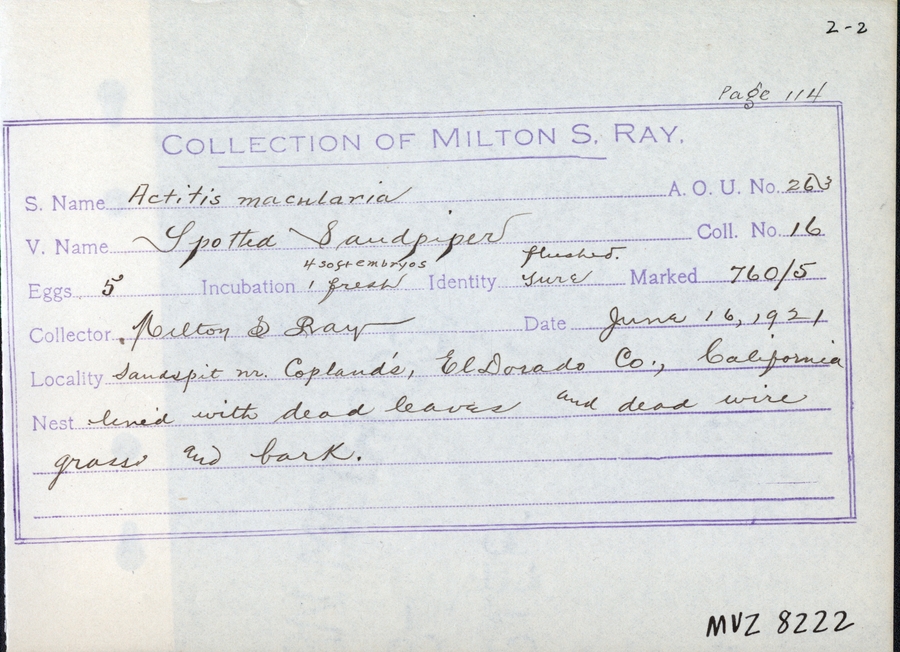 2-2
Page 114
COLLECTION OF MILTON S. RAY.
S. Name Actitis macularia A. O. U. No. 263
V. Name Spotted Sandpiper Coll. No. 16
4 soft embryos flushed.
Eggs 5 Incubation 1 fresh Identity sure Marked 760/5
Collector Milton S Ray Date June 16, 1921
Locality Sandspit nr. Copland's, El Dorado Co., California
Nest lined with dead leaves and dead wire
grass and bark.
MVZ 8222